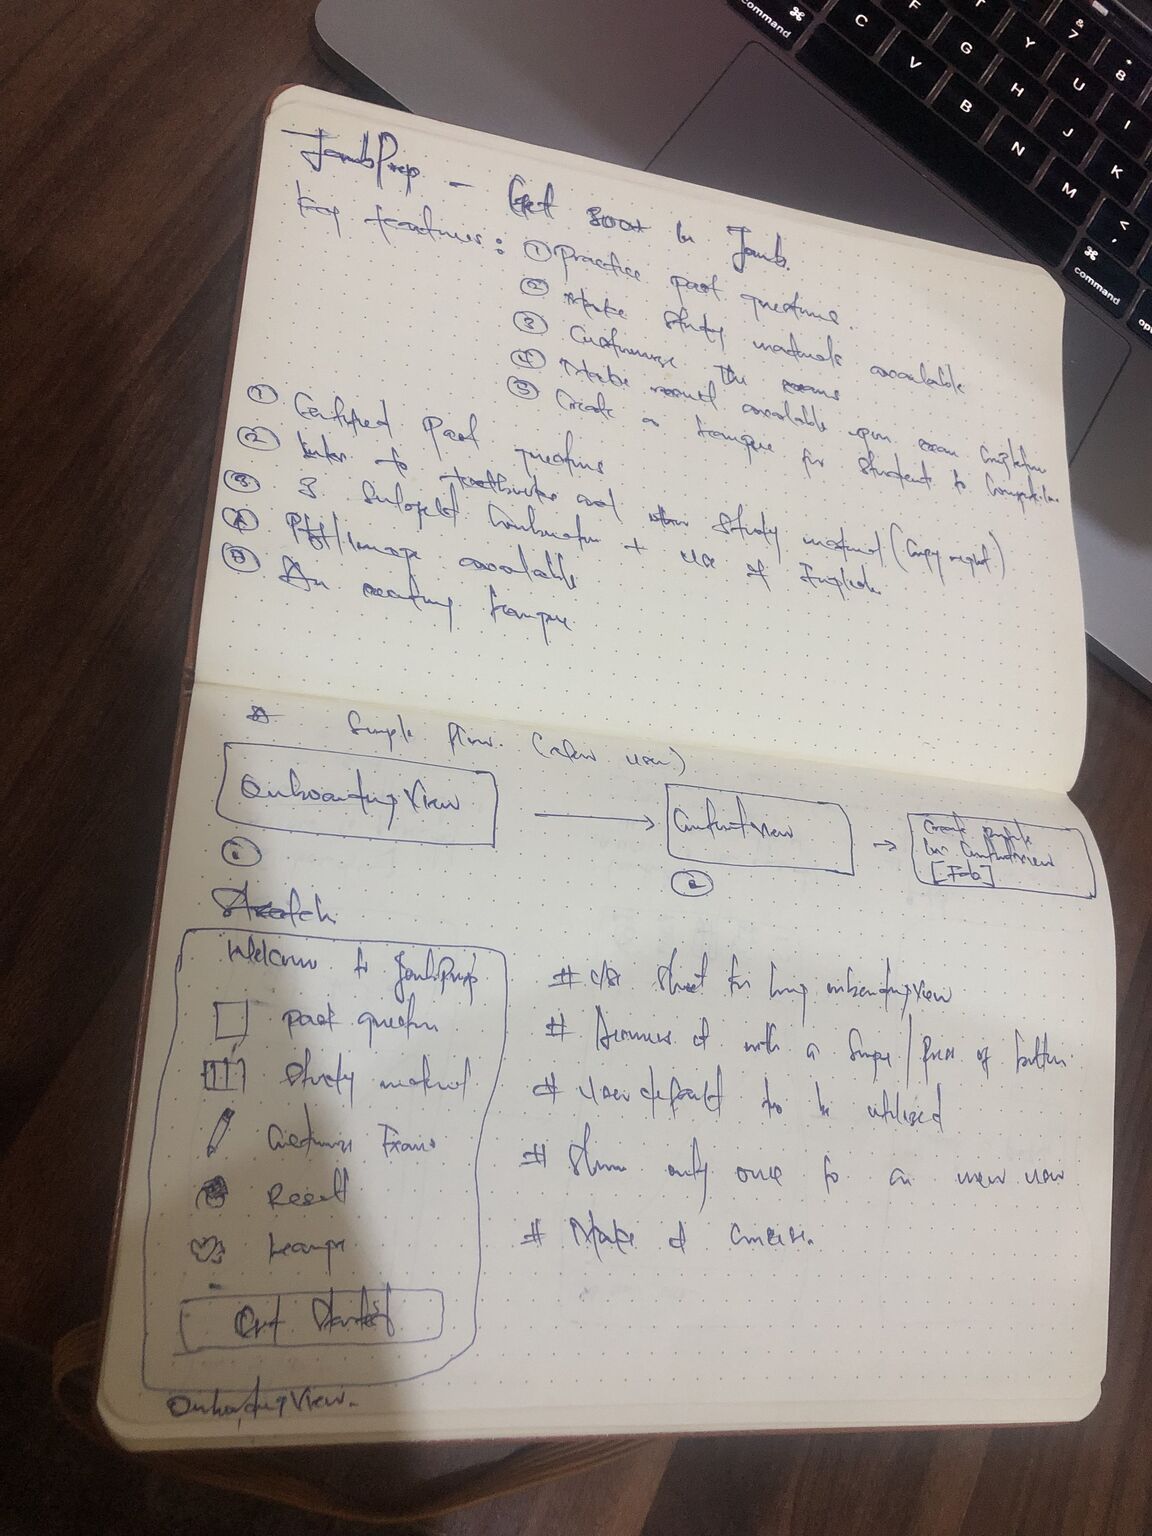 JambPrep - Get 300+ in Jamb.
Key features: ① Practice past questions.
② Make study materials available
③ Customise the exams
④ Make result available upon exam completion
⑤ Create a league for students to compete in.
① Certified past questions
② Links to textbooks and other study material (Copyright)
③ 3 subject combination + use of English.
④ Pdf/image available
⑤ An exciting league
Simple flow. (New user)
OnboardingView → ContentView → Create profile in ContentView [Tab]
①
②
Sketch
Welcome to JambPrep
past question
Study material
Customise Exams
Result
League
Get Started
OnboardingView.
# Use Sheet for OnboardingView
# Dismiss it with a swipe / press of button.
# User default to be utilized
# Show only once to a new user
# Make it concise.
command C V B N M < , command
F G H J K
T Y U I
& 7 * 8